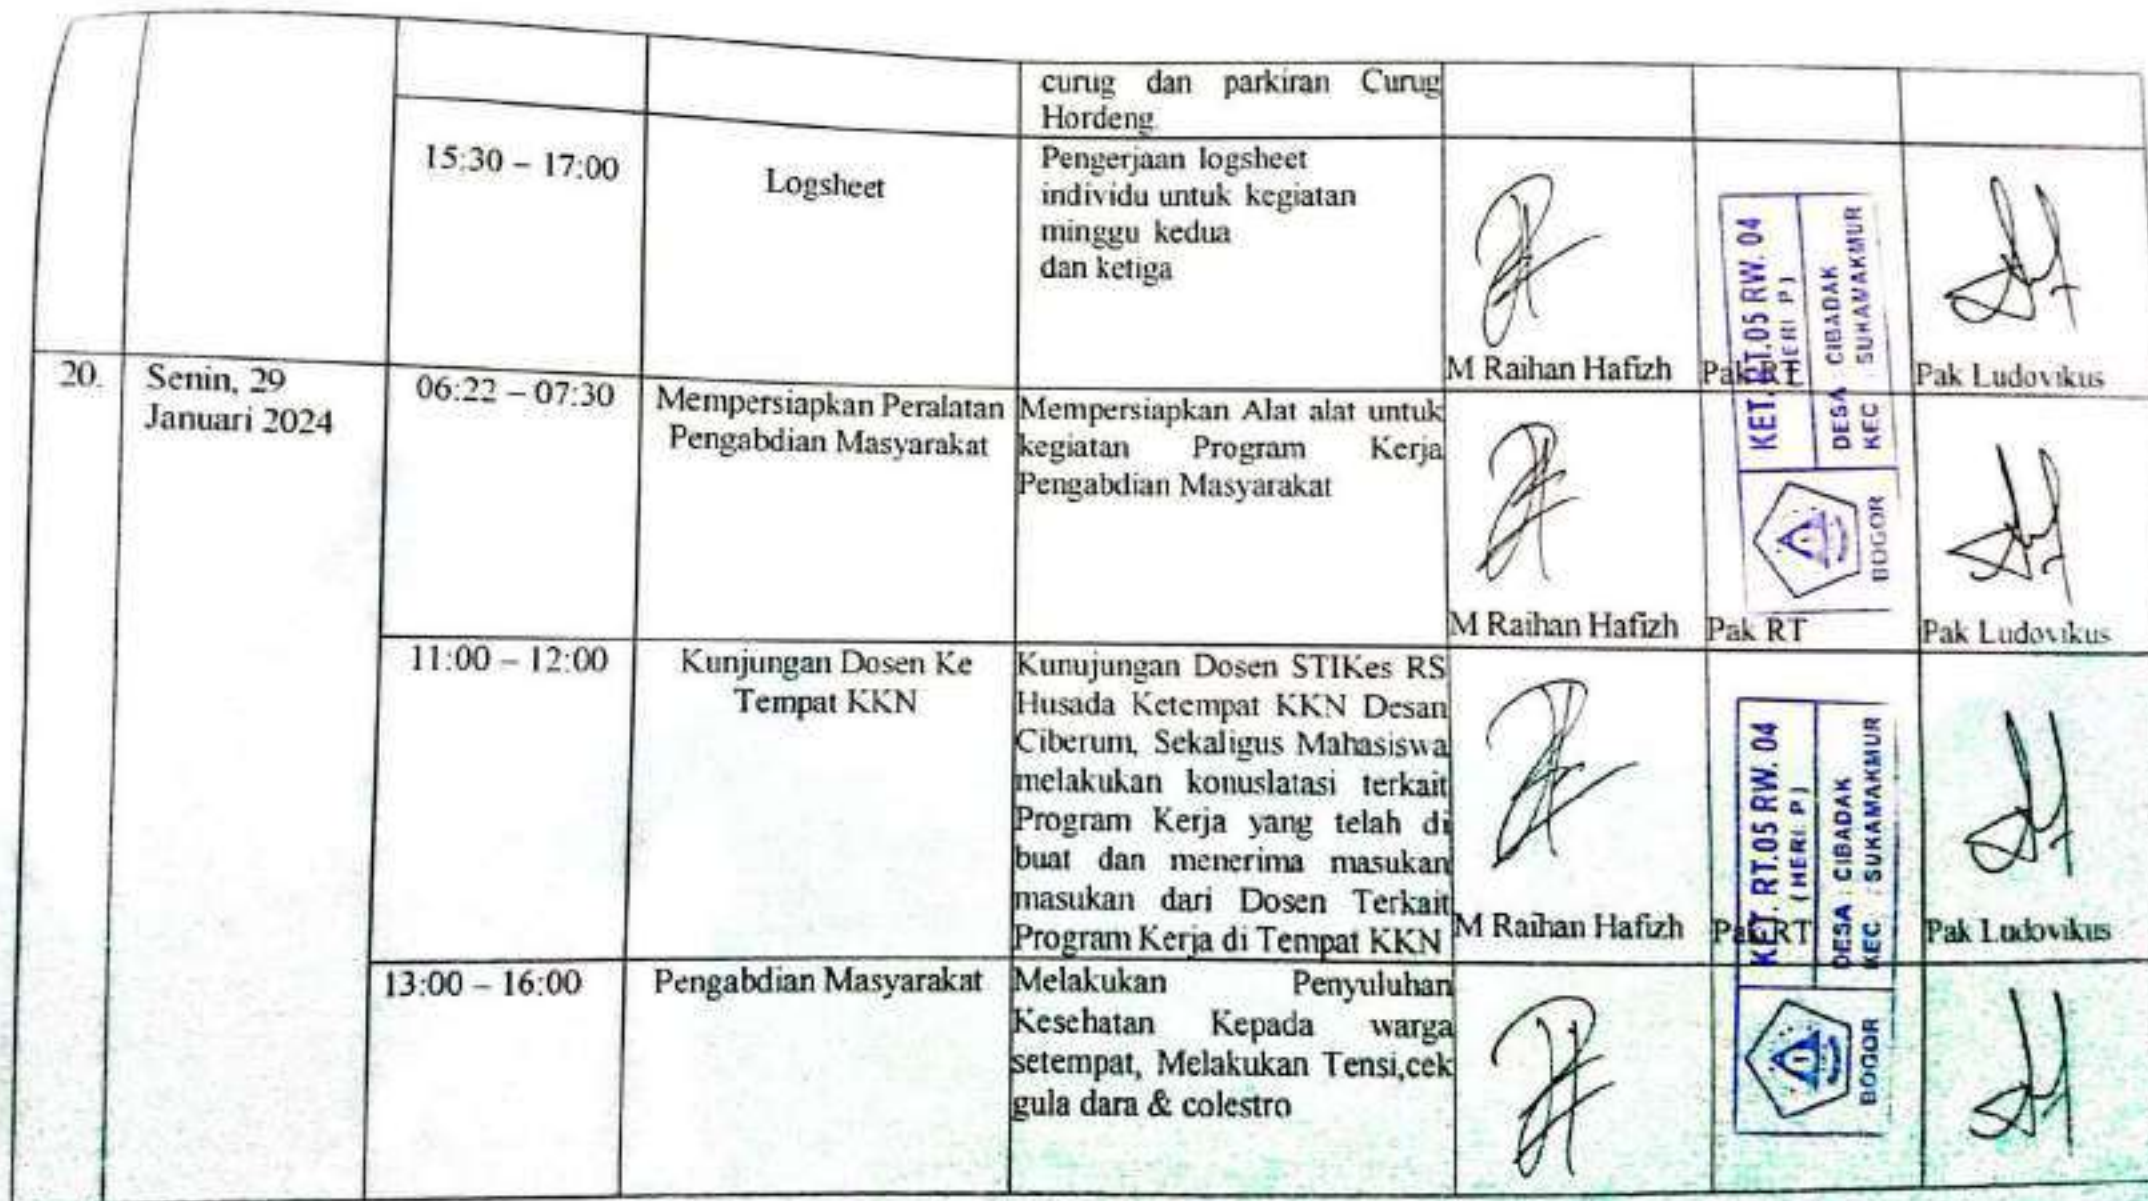 curug dan parkiran Curug
Hordeng
15:30 – 17:00
Logsheet
Pengerjaan logsheet
individu untuk kegiatan
minggu kedua
dan ketiga
M Raihan Hafizh
Pak RT
Pak Ludovikus
KET. RT.05 RW. 04
(HERI P)
DESA CIBADAK
KEC SUKAMAKMUR
BOGOR
20.
Senin, 29
Januari 2024
06:22 – 07:30
Mempersiapkan Peralatan
Pengabdian Masyarakat
Mempersiapkan Alat alat untuk
kegiatan Program Kerja
Pengabdian Masyarakat
M Raihan Hafizh
Pak RT
Pak Ludovikus
11:00 – 12:00
Kunjungan Dosen Ke
Tempat KKN
Kunujungan Dosen STIKes RS
Husada Ketempat KKN Desan
Ciberum, Sekaligus Mahasiswa
melakukan konuslatasi terkait
Program Kerja yang telah di
buat dan menerima masukan
masukan dari Dosen Terkait
Program Kerja di Tempat KKN
M Raihan Hafizh
Pak RT
Pak Ludovikus
KET. RT.05 RW. 04
(HERI P)
DESA : CIBADAK
KEC : SUKAMAKMUR
BOGOR
13:00 – 16:00
Pengabdian Masyarakat
Melakukan Penyuluhan
Kesehatan Kepada warga
setempat, Melakukan Tensi,cek
gula dara & colestro